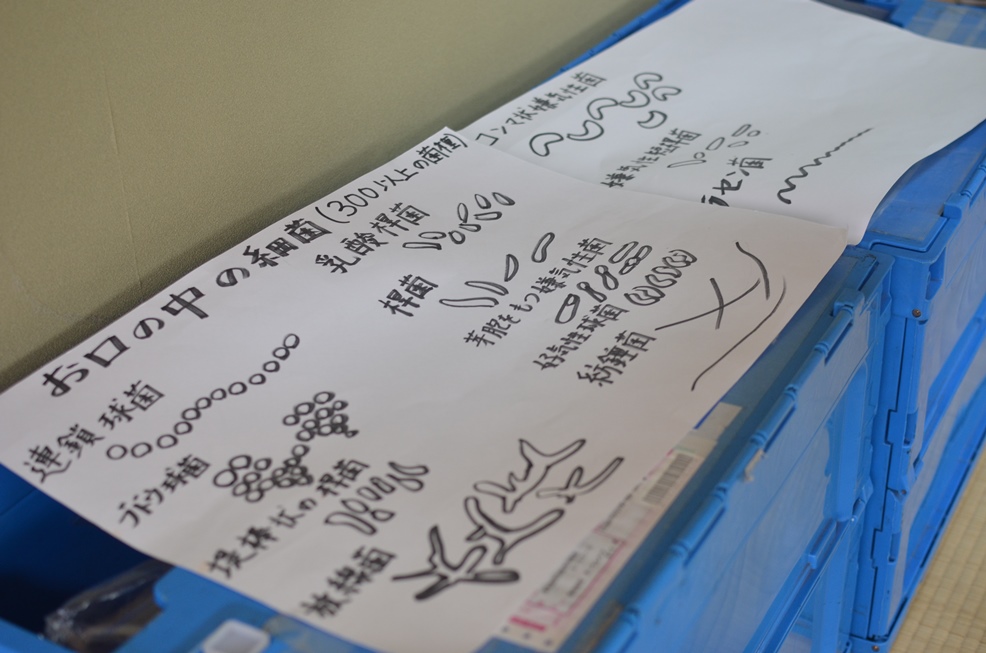 お口の中の細菌(300以上の菌種)
連鎖球菌
ブドウ球菌
提棒状の桿菌
放線菌
乳酸桿菌
桿菌
芽胞をもつ嫌気性菌
好気性球菌
紡錘菌
コンマ状嫌気性菌
嫌気性短桿菌
ラセン菌